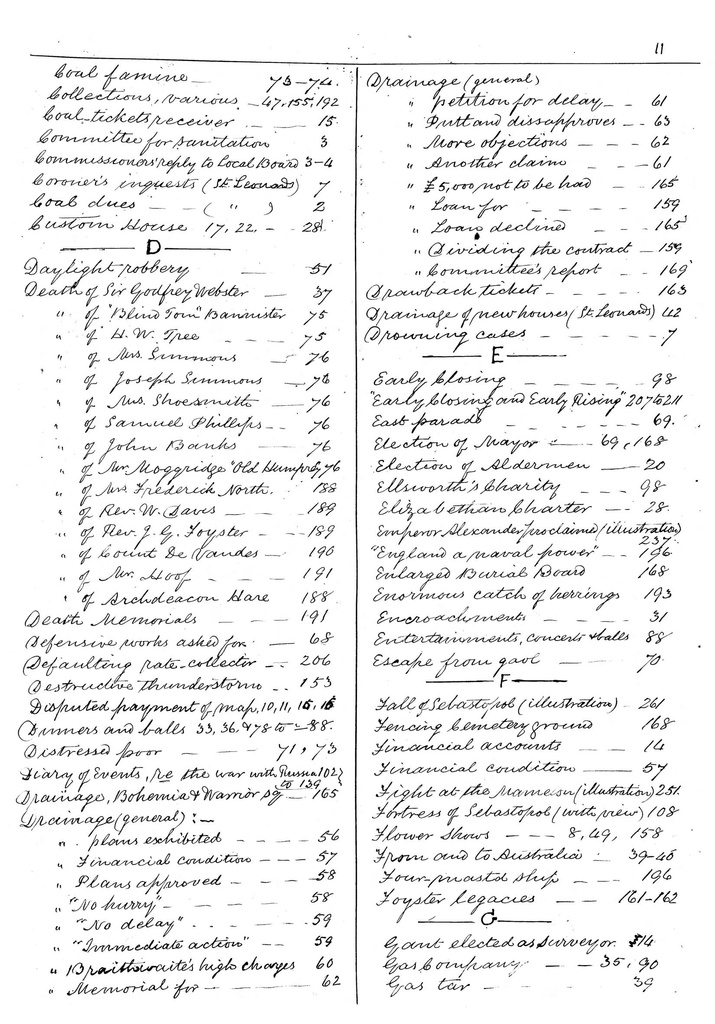 11
Coal famine — 73–74.
Collections, various — 47, 155, 192
Coal-tickets receiver — 15.
Committee for sanitation 3
Commissioners' reply to Local Board 3–4
Coroner's inquests (St. Leonards) 7
Coal dues — ( " ) 2
Custom House 17, 22. – 28
D
Daylight robbery — 51
Death of Sir Godfrey Webster — 37
" of "Blind Tom" Bannister 75
" of H. W. Tree — 75
" of Mrs. Simmons — 76
" of Joseph Simmons — 76
" of Mrs. Shoesmith — 76
" of Samuel Phillips – – 76
" of John Banks — 76
" of Mr. Moggridge "Old Humphrey" 76
" of Mrs Frederick North. 188
" of Rev. W. Davis — 189
" of Rev. J. G. Foyster — 189
" of Count De Vandes – 190
" of Mr. Hoof – – – 191
" of Archdeacon Hare 188
Death Memorials — — 191
Defensive works asked for — 68
Defaulting rate-collector – . . 206
Destructive thunderstorm – . . 153
Disputed payment of map, 10, 11, 15, 16
Dinners and balls 33, 36. & 78 to — 88.
Distressed poor — 71, 73
Diary of Events, re the war with Russia 102
to 139
Drainage, Bohemia & Warrior Sq — 165
Drainage (general) :—
" . plans exhibited — 56
" Financial condition – – – 57
" Plans approved – — – 58
" "No hurry" – — — 58
" "No delay" . – — — 59
" "Immediate action" – – 59
" Braithwaite's high charges 60
" Memorial for – — – 62
Drainage (general)
" petition for delay – – 61
" Putland dissapproves – – 63
" More objections – – – 62
" Another claim – – – 61
" £5,000 not to be had – – 165
" Loan for – — – – 159
" Loan declined – – – 165
" Dividing the contract – 159
" Committee's report – – 169
Drawback tickets – — – 163
Drainage of new houses (St. Leonards) 42
Drowning cases – — – – 7
E
Early Closing – — – — 98
"Early Closing and Early Rising" 207 to 211
East parade – – – – – 69.
Election of Mayor – – 69, 168
Election of Aldermen – – 20
Ellsworth's Charity – – 98
Elizabethan Charter – – 28.
Emperor Alexander proclaimed (illustration)
237.
"England a naval power" – – 196
Enlarged Burial Board 168
Enormous catch of herrings 193
Encroachments – – — 31
Entertainments, concerts & balls 88
Escape from gaol – — 70.
F
Fall of Sebastopol (illustration) – 261
Fencing Cemetery ground 168
Financial accounts – – 14
Financial condition – – 57
Fight at the Mameson (illustration) 251.
Fortress of Sebastopol (with view) 108
Flower Shows – – – 8, 49, 158
From and to Australia – 39–40
Four-mast'd ship – — 196
Foyster legacies – – – 161–162
G
Gant elected as surveyor. 14
Gas Company – – 35, 90
Gas tar – – — – 39